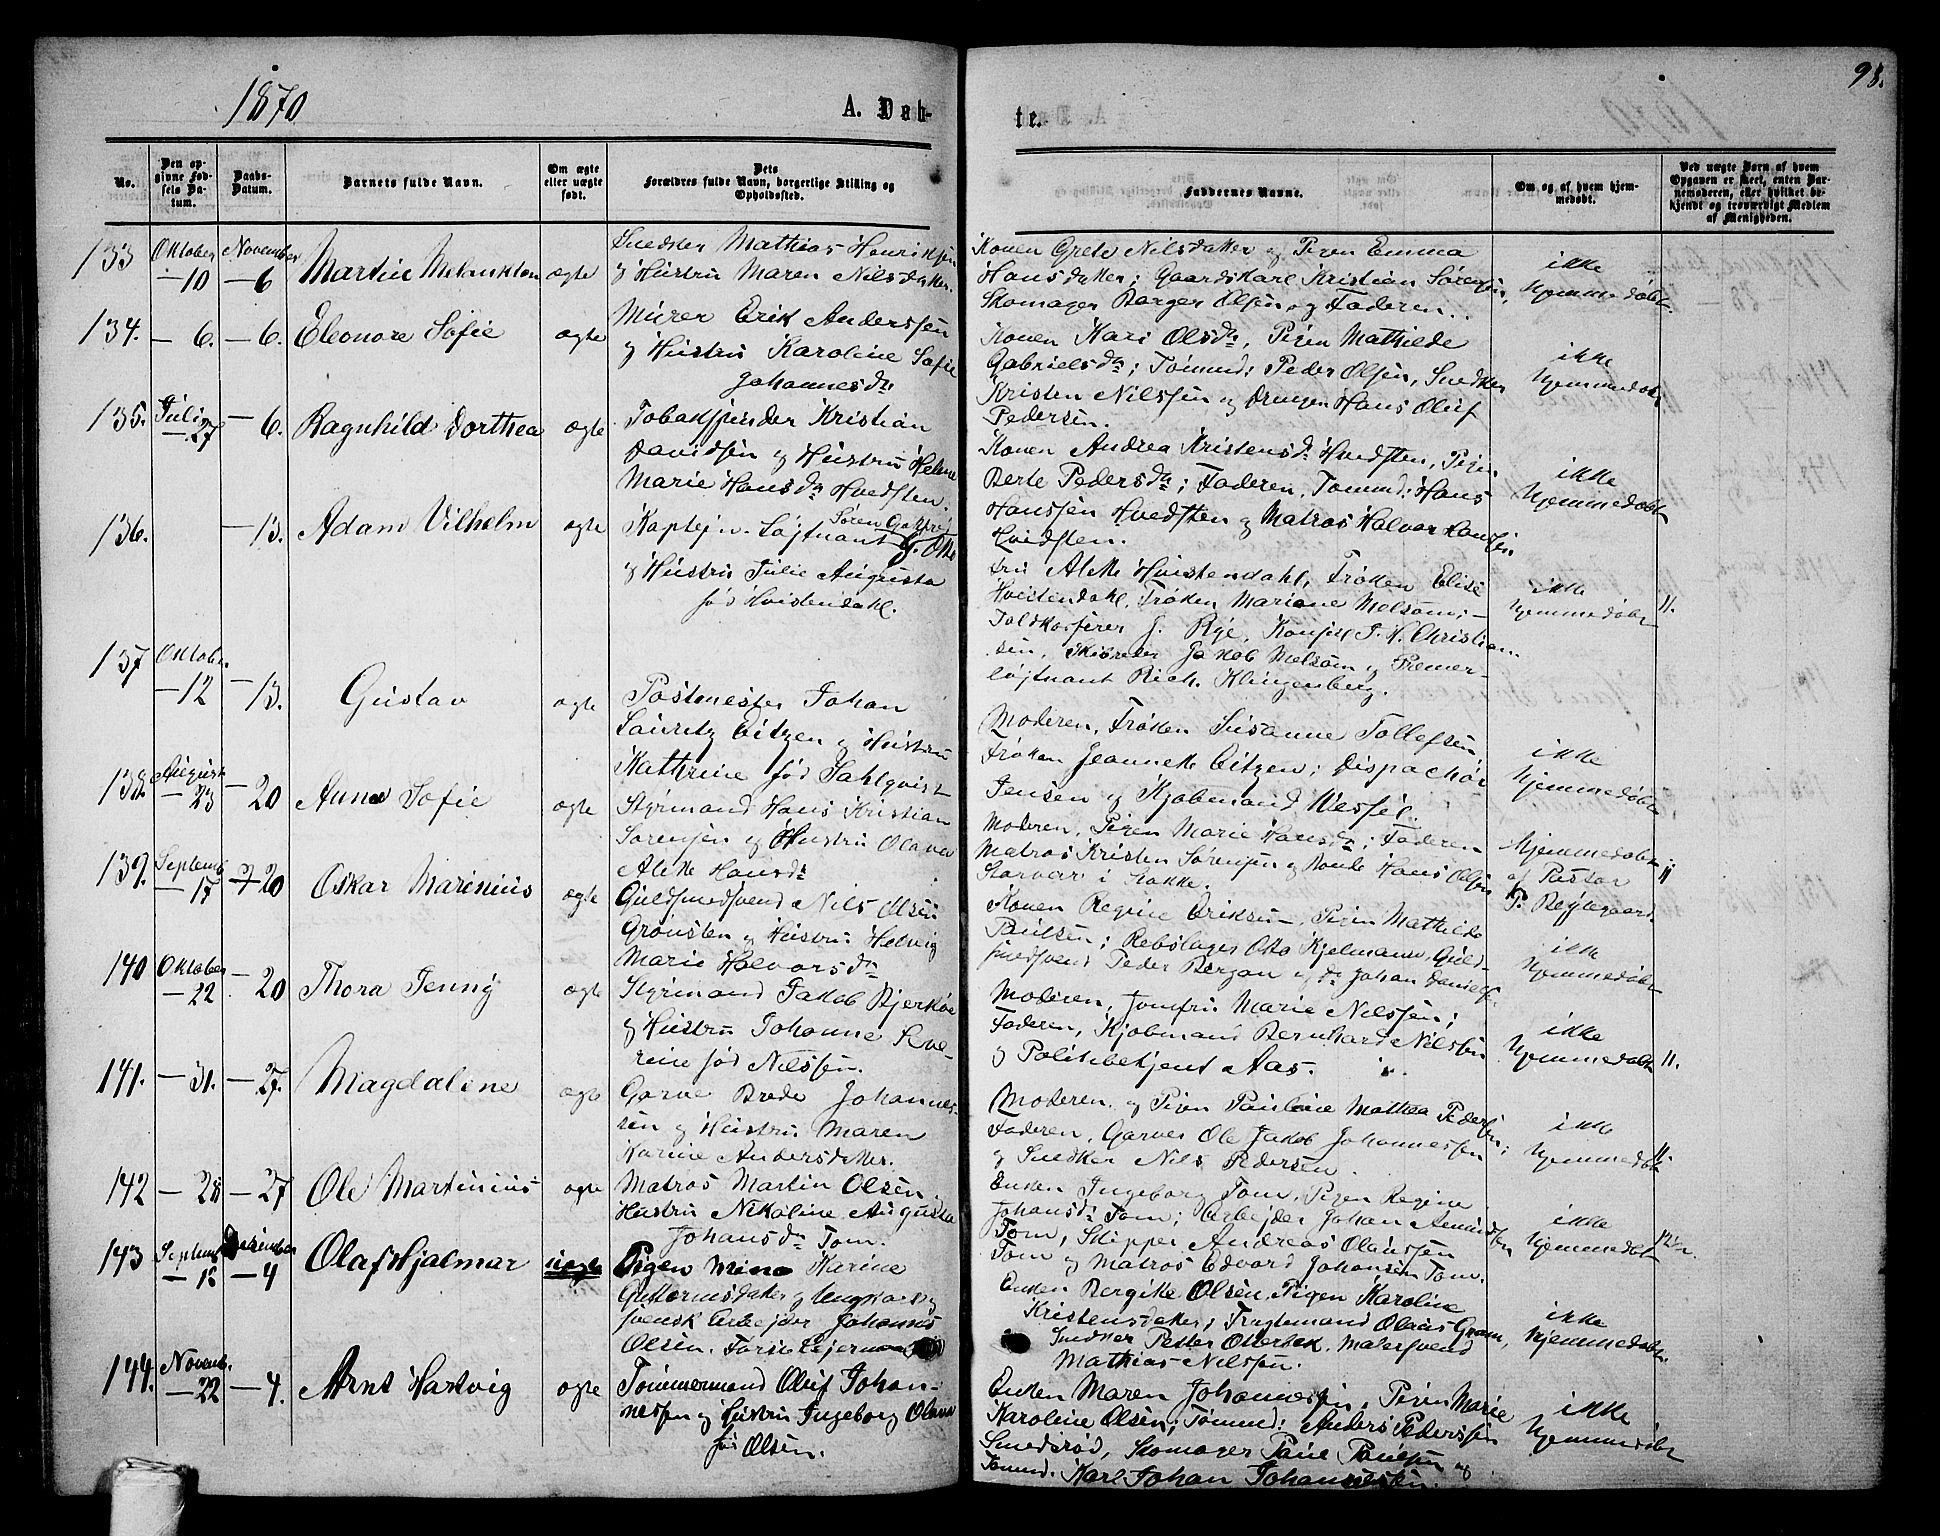 1870
A. Døb-
te.
98.
No.
Den op-
givne Fød-
sels Da-
tum.
Daabs-
Datum.
Barnets fulde Navn.
Om ægte
eller uægte
født.
Dets
Forældres fulde Navn, borgerlige Stilling og
Opholdssted.
Faddernes Navne.
Om og af hvem hjem-
medøbt.
Ved uægte Børn af hvem
Opgaven er skeet, enten Bar-
nemoderen, eller hvilket be-
kjendt og troværdigt Medlem
af Menigheden.
133 Oktober 10 November 6 Martin Melankton ægte
Snedker Mathias Henriksen
og Hustru Maren Nilsdatter.
Konen Grete Nilsdatter og Pigen Emma
Hansdatter; Gaardskarl Kristian Sørensen,
Skomager Borger Olsen og Faderen.
ikke
hjemmedøbt.
134. — 6. — 6. Eleonore Sofie ægte
Murer Erik Anderssen
og Hustru Karoline Sofie
Johannesdr
Konen Kari Olsdr, Pigen Mathilde
Gabrielsdr; Tømmd: Peder Olsen, Snedker
Kristen Nilssen og Drengen Hans Oluf
Pedersen.
ikke
hjemmedøbt
135. Juli 27 — 6. Ragnhild Dorthea ægte
Tobakspinder Kristian
Davidsen og Hustru Helene
Marie Hansdr Hvedsten.
Konen Andrea Kristensdr Hvedsten, Pigen
Berte Pedersdr; Faderen, Tømmd: Hans
Hanssen Hvedsten og Matros Halvor Hanssen
Hvidsten.
ikke
hjemmedøbt
136. — 13. Adam Vilhelm ægte
Kaptejn-Løjtnant Søren Gotfred
og Hustru Julie Augusta
fød Hvistendahl.
Fru Alette Hvistendahl, Frøken Elise
Hvistendahl, Frøken Mariane Melsom;
Toldkasserer J. Rye, Konsul J. H. Christian-
sen, Skibsreder Jakob Melsom og Premier-
løjtnant Rich. Klingenberg.
ikke
hjemmedøbt
11.
137 Oktober — 12 — 13. Gustav ægte
Postmester Johan
Lauritz Eitzen og Hustru
Kathrine fød Sahlqvist
Moderen, Frøken Susanne Tollefsen,
Frøken Jeannette Eitzen; Dispachør
Jensen og Kjøbmand Wessel.
ikke
hjemmedøbt
138. August — 23 — 20 Anna Sofie ægte
Styrmand Hans Kristian
Sørensen og Hustru Olava
Alette Hansdr
Moderen, Pigen Marie Hansdr; Faderen
Matros Kristen Sørensen og Bonde Hans Olsen
i Stokke.
Hjemmedøbt
af Pastor
P. Rejtegaard
139. Septemb — 17 — 20 Oskar Marinius ægte
Guldsmedsvend Nils Olsen
Grønsten og Hustru Helvig
Marie Halvorsdr
Konen Regine Eriksen, Pigen Mathilde
Paulsen; Rebslager Otto Kjelmann, Guld-
smedsvend Peder Bergan og do Johan Danielsen
ikke
hjemmedøbt
140 Oktober — 22 — 20 Thora Jenny ægte
Styrmand Jakob Bjerkøe
og Hustru Johanne Seve-
rine fød Nilssen.
Moderen, Jomfru Marie Nilssen;
Faderen, Kjøbmand Bernhard Nilssen
og Politibetjent Aas.
ikke
hjemmedøbt
11.
141. — 31. — 27. Magdaline ægte
Garver Brede Johannes-
sen og Hustru Maren
Karine Andersdatter.
Moderen og Pigen Pauline Mathea Pedersen;
Faderen, Garver Ole Jakob Johannessen
og Snedker Nils Pedersen.
ikke
hjemmedøbt
11.
142 — 28 — 27 Ole Martinius ægte
Matros Martin Olsen og
Hustru Nikoline Augusta
Johansdr Tom.
Enken Ingeborg Tom, Pigen Regine
Johansdr Tom; Arbejder Johan Amundsen
Tom, Skipper Andreas Olaussen
Tom og Matros Edvard Johansen Tom.
ikke
hjemmedøbt
143 Septemb — 18 December — 4 Olaf Hjalmar uægte
Pigen Mina Karine
Guttormsdatter og Ungkarl
svensk Arbejder Johannes
Olsen.
Enken Bergitte Olsen, Pigen Karoline
Kristensdatter; Fragtemand Olaus Gram,
Snedker Petter Otterbek, Malersvend
Mathias Nilssen.
ikke
hjemmedøbt
144. Novemb. — 22 — 4. Arnt Hartvig ægte
Tømmermand Oluf Johan-
nessen og Hustru Ingeborg Olava
fød Olsen.
Enken Maren Johannessen, Pigen Marie
Karoline Olsen; Tømmd: Anders Pederssen
Smedsrød, Skomager Paul Paulsen og
Tømmd. Karl Johan Johannessen.
ikke
hjemmedøbt